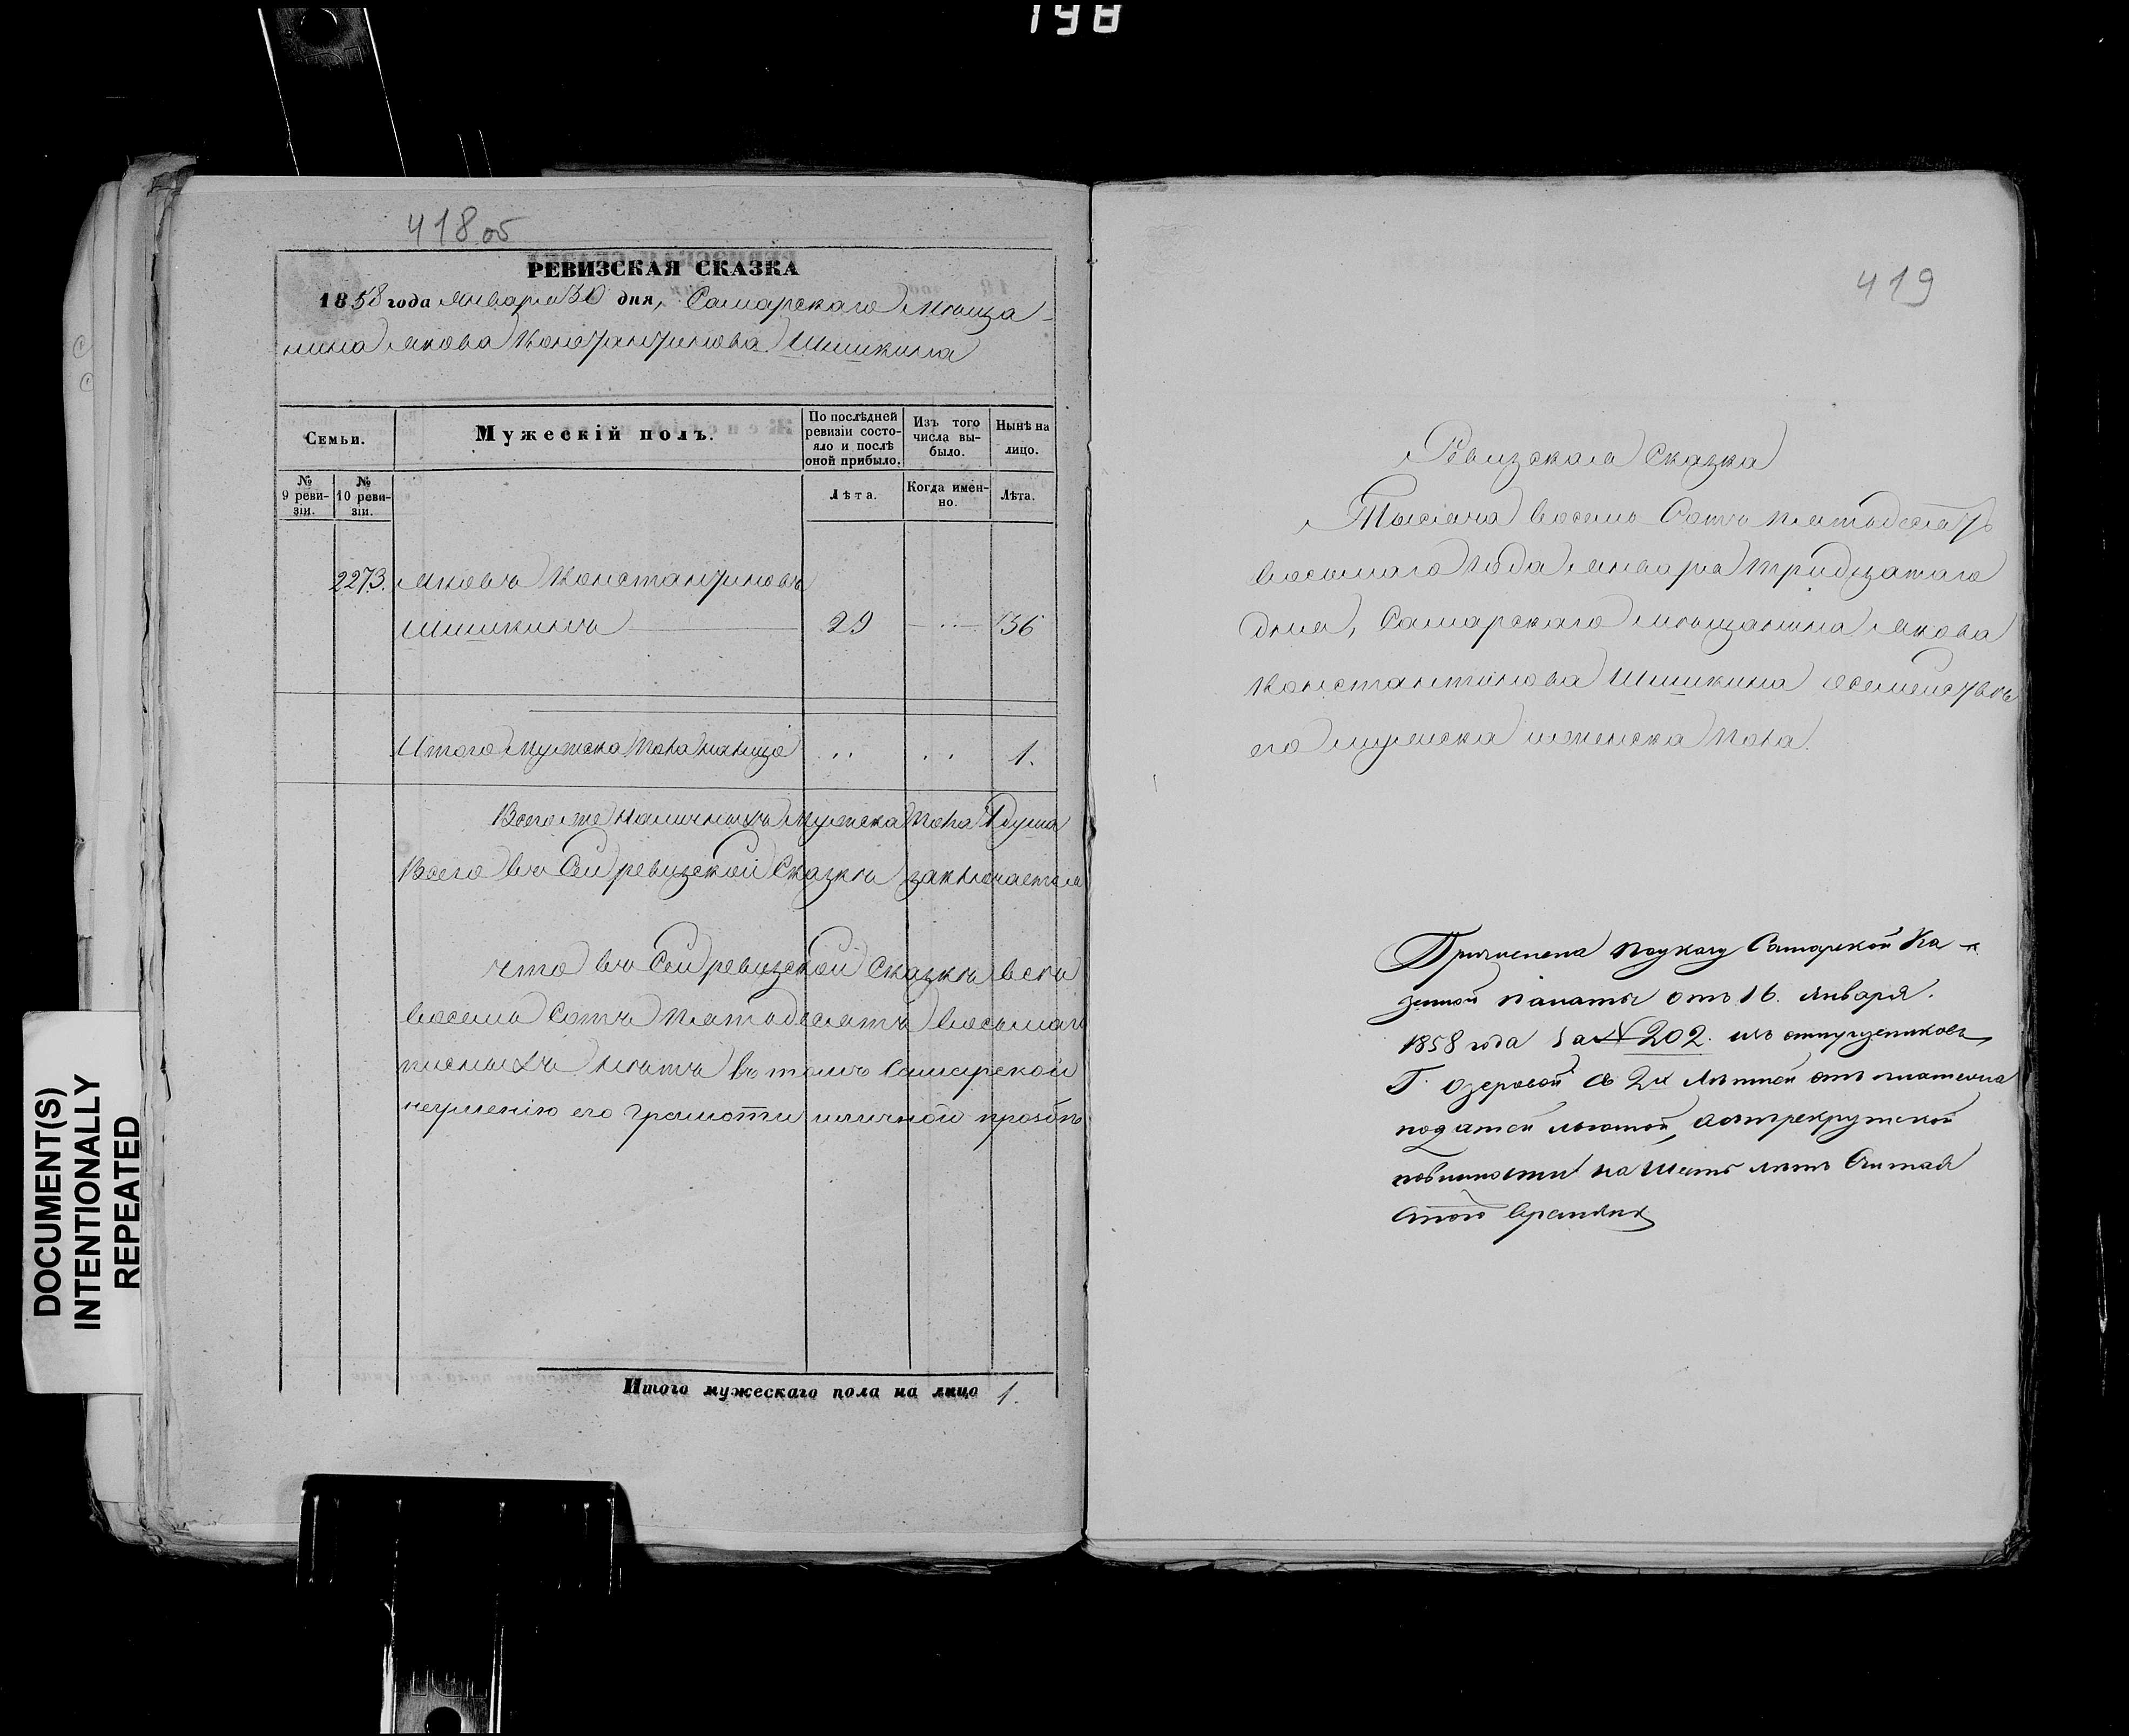 198
418 об
РЕВИЗСКАЯ СКАЗКА
1858 года Января 30 дня, Самарскаго Мѣща-
нина Якова Константинова Шишкина
Семьи.
Мужескій полъ.
По послѣдней ревизіи состояло и послѣ оной прибыло.
Изъ того числа выбыло.
Нынѣ на лицо.
№ 9 ревизіи.
№ 10 ревизіи.
Лѣта.
Когда именно.
Лѣта.
2273. Яковъ Константиновъ
Шишкинъ 29 — 36
Итого мужска пола налицо .. .. 1.
Всего же наличныхъ мужска пола 1 душа
Всего въ сей ревизской сказкѣ заключается
что въ сей ревизской сказкѣ всѣ
восемь сотъ пятьдесятъ восьмаго
писныхъ лѣтъ въ томъ Самарской
неумѣнію его грамоти и личной прозбѣ
Итого мужескаго пола на лицо 1.
DOCUMENT(S)
INTENTIONALLY
REPEATED
419
Ревизская Сказка
Тысяча восемь Сотъ пятьдесятъ
восьмаго года Января тридцатаго
дня, Самарскаго мѣщанина Якова
Константинова Шишкина осемействѣ
его мужска и женска пола.
Причислена поуказу Самарской Ка-
зенной палаты отъ 16. Января.
1858 года за № 202. изъ отпущенниковъ
Г. Озеровой съ 2х лѣтней отъ платежа
податей льготой, а отрекрутской
повинности на шесть лѣтъ считая
стого времяни